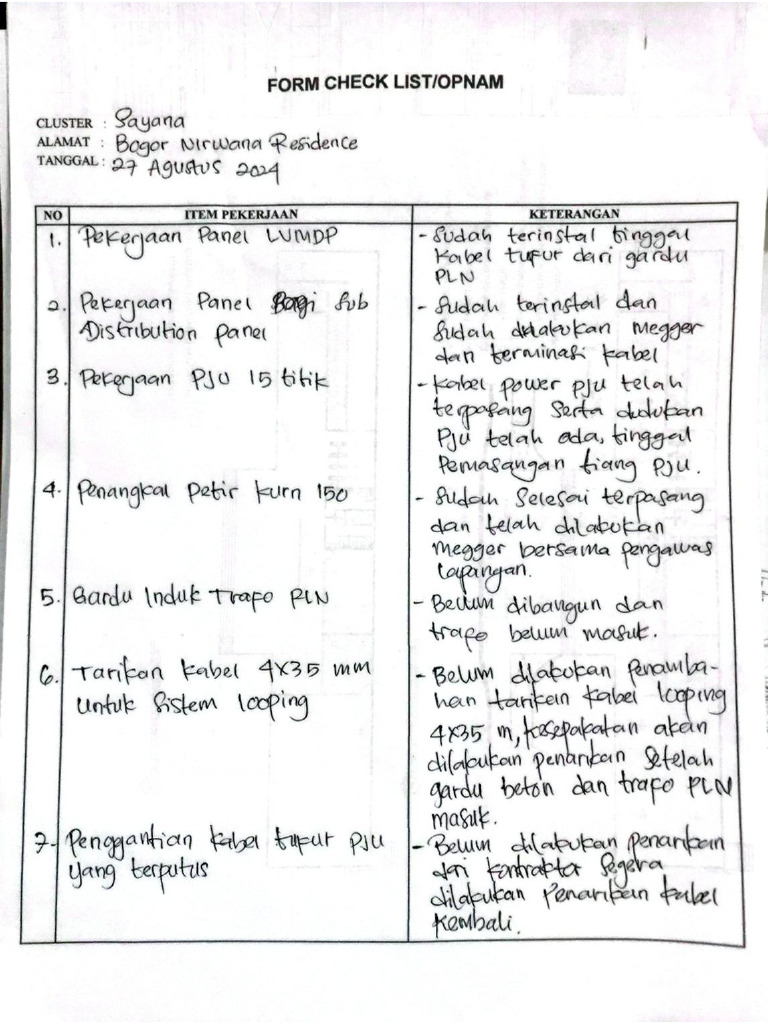 FORM CHECK LIST/OPNAM
CLUSTER : Sayana
ALAMAT : Bogor Nirwana Residence
TANGGAL : 27 Agustus 2024
NO ITEM PEKERJAAN KETERANGAN
1. Pekerjaan Panel LVMDP
- Sudah terinstal tinggal
kabel tufur dari gardu
PLN
2. Pekerjaan Panel Bagi Sub
Distribution panel
- Sudah terinstal dan
sudah dilakukan megger
dan terminasi kabel
3. Pekerjaan PJU 15 titik
- Kabel power pju telah
terpasang serta dudukan
PJU telah ada, tinggal
Pemasangan tiang PJU.
4. Penangkal Petir kurn 150
- Sudah Selesai terpasang
dan telah dilakukan
megger bersama pengawas
lapangan.
5. Gardu Induk Trafo PLN
- Belum dibangun dan
trafo belum masuk.
6. Tarikan kabel 4x35 mm
untuk Sistem looping
- Belum dilakukan Penamba-
han tarikan kabel looping
4x35 m, kesepakatan akan
dilakukan penarikan setelah
gardu beton dan trafo PLN
masuk.
7. Penggantian kabel tufur PJU
yang terputus
- Belum dilakukan penarikan
dari kontraktor segera
dilakukan Penarikan kabel
kembali.